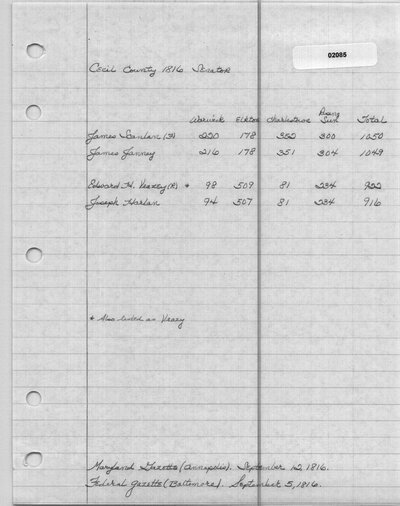 02085
Cecil County 1816 Senator
Warwick Elkton Charlestown Rising Sun Total
James Scanlan (F) 220 178 352 300 1050
James Janney 216 178 351 304 1049
Edward H. Veazey (R) * 98 509 81 234 922
Joseph Harlan 94 507 81 234 916
* Also listed as Veazy
Maryland Gazette (Annapolis). September 12, 1816.
Federal Gazette (Baltimore). September 5, 1816.